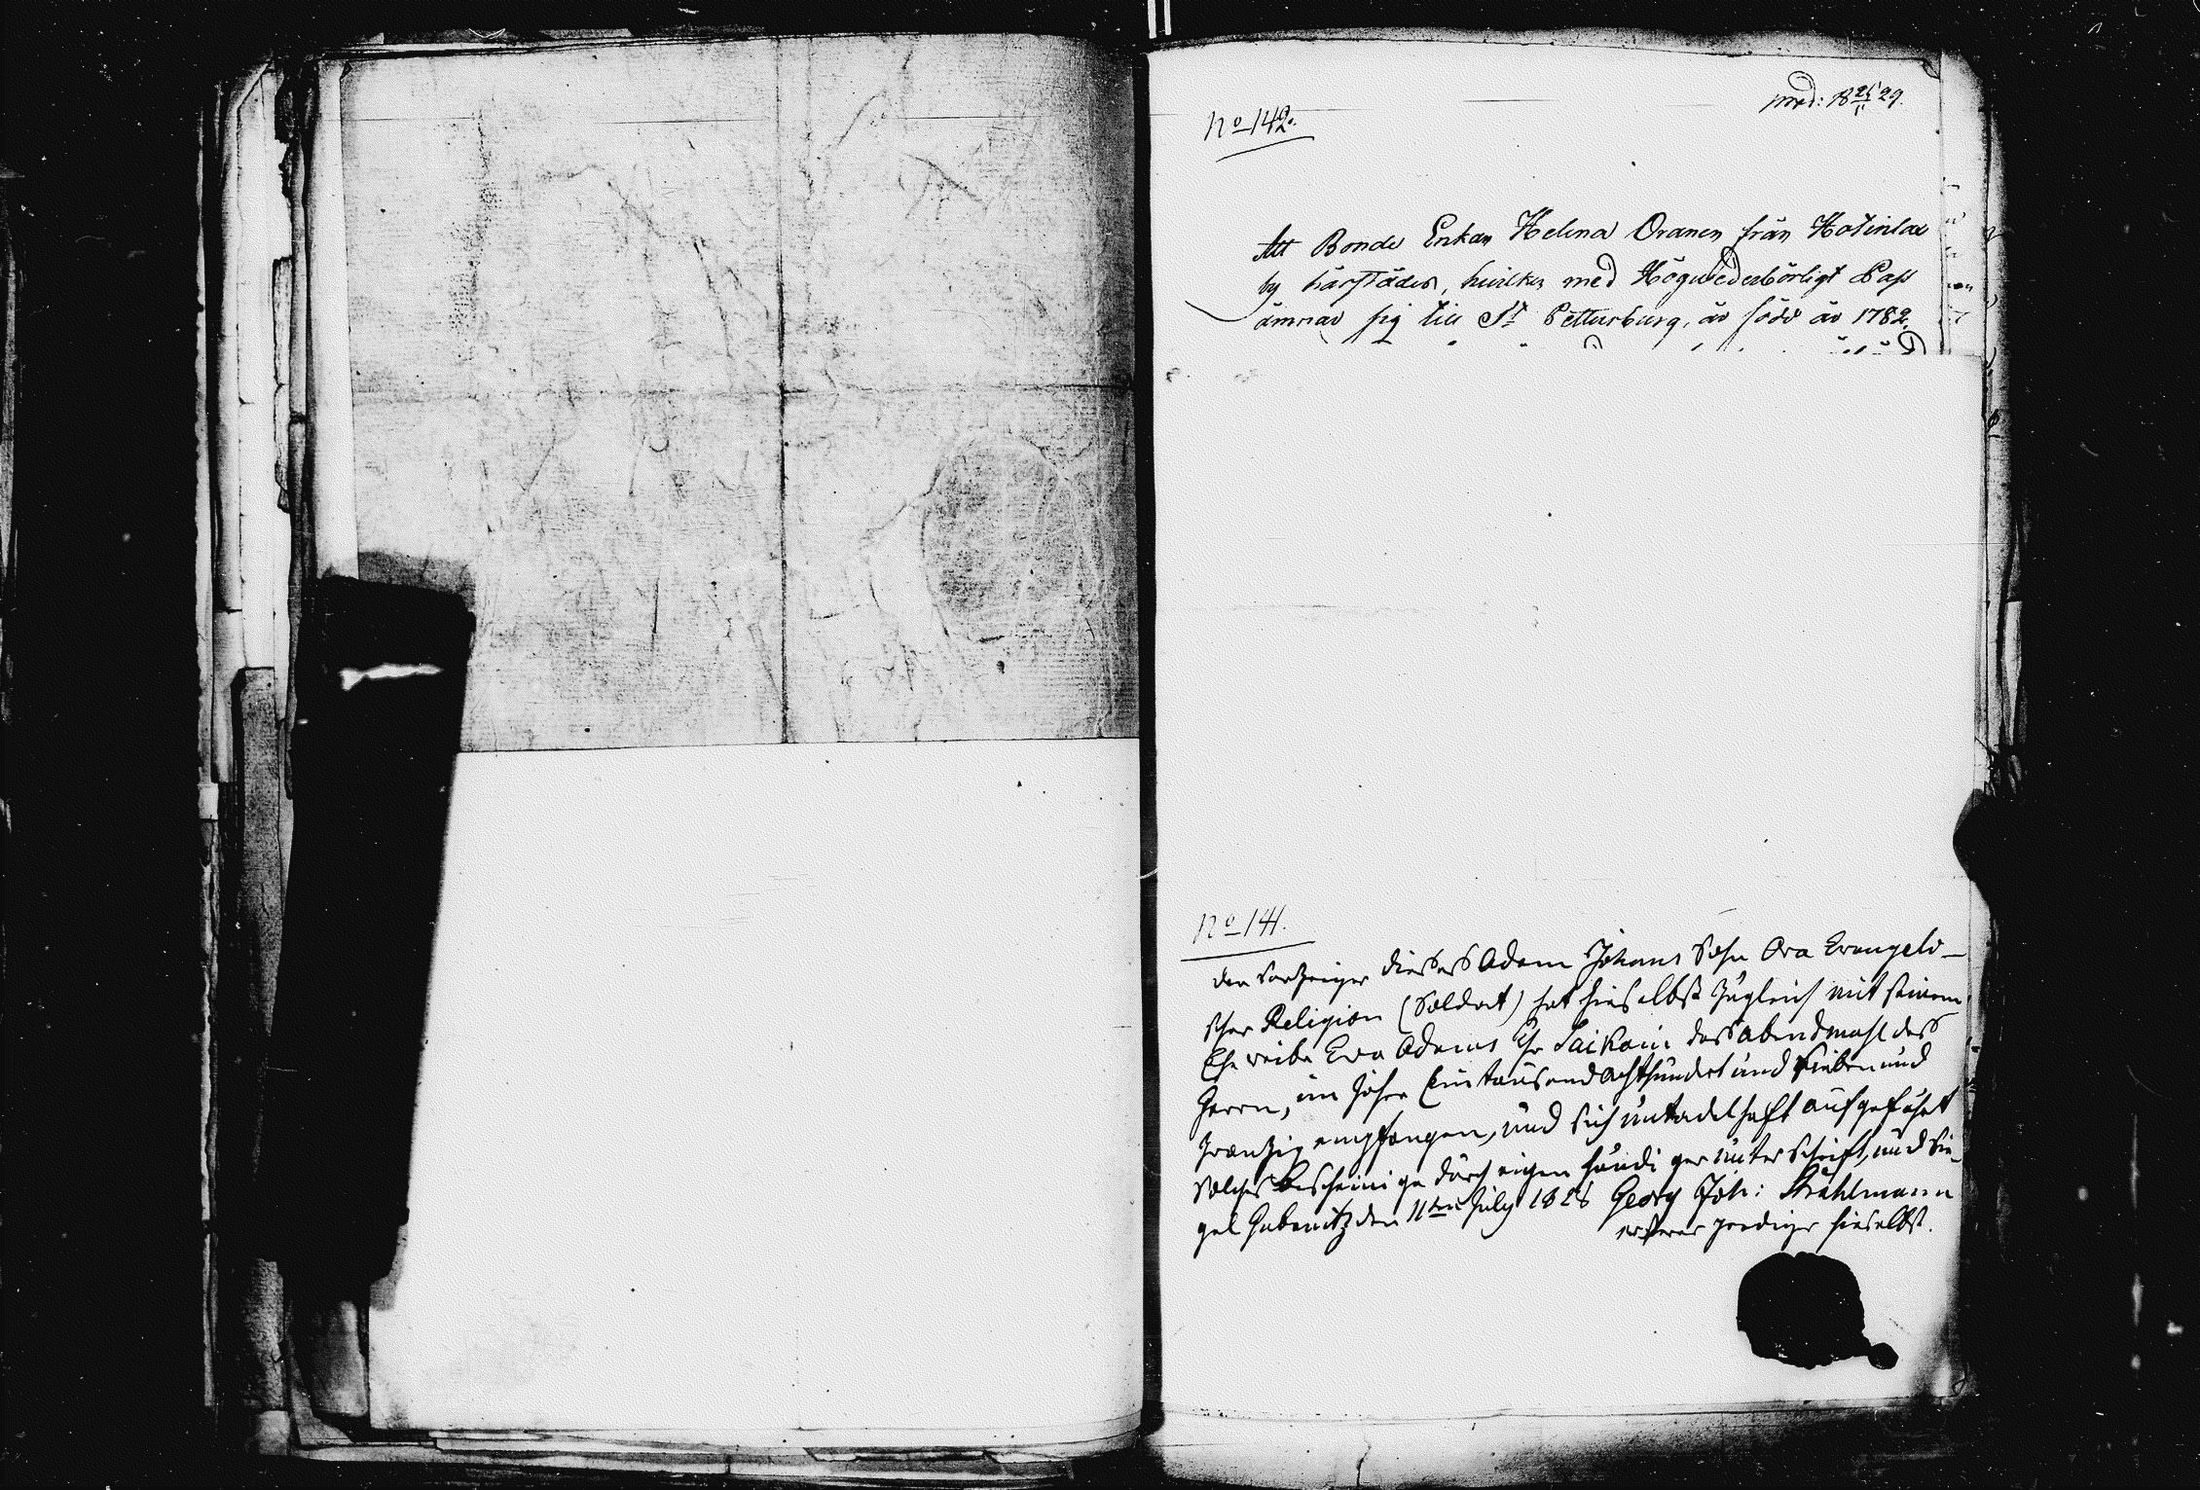 No 142.
prod: 18 25/11 29.
Att Bonde Enkan Helena Oranen från Hotinlax
by härstädes, hvilken med Högvederbörligt Pass
ämnar sig till St Pettersburg, är född år 1782.
No 141.
der Vorzeiger dieses Adam Johans Sohn Ora Evangeli-
scher Religion (Soldat) hat hieselbst zugleich mit seinem
Ehe weibe Eva Adams Thr Taikain das Abendmahl des
Herrn, im Jahre Ein tausend Achthundert und Sieben und
zwanzig empfangen, und sich untadelhaft aufgeführt
solches bescheinige durch eigen händi ger unter schrift, und Sie-
gel Gubanitz den 11ten July 1828 Georg Joh: Strahlmann
Prediger hieselbst.